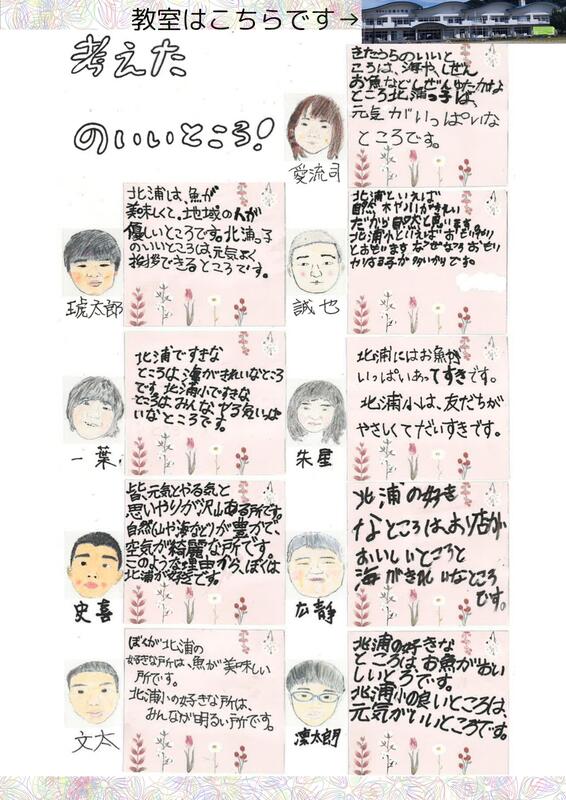 教室はこちらです→
考えた
のいいところ!
きたうらのいいと
ころは、海や、しぜん
お魚などしぜんゆたかな
ところ北浦っ子は、
元気がいっぱいな
ところです。
愛流司
北浦は、魚が
美味しくて、地域の人が
優しいところです。北浦っ子
のいいところは、元気よく
挨拶できるところです。
琥太郎
北浦といえば
自然
とおもいます
誠也
北浦ですきな
ところは、海がきれいなところ
です。北浦小ですきな
ところはみんなやる気いっぱ
いなところです。
一葉
北浦にはお魚が
いっぱいあってすきです。
北浦小は、友だちが
やさしくてだいすきです。
朱星
皆、元気とやる気と
思いやりが沢山ある所です。
自然(山や海など)が豊かで、
空気が綺麗な所です。
このような理由から、ぼくは
北浦が好きです。
史喜
北浦の好き
なところはお店が
おいしいところと
海がきれいなところ
です。
広静
ぼくが北浦の
好きな所は、魚が美味しい
所です。
北浦小の好きな所は、
みんなが明るい所です。
文太
北浦の好きな
ところはお魚がおい
しいところです。
北浦小の良いところは、
元気がいいところです。
凛太朗